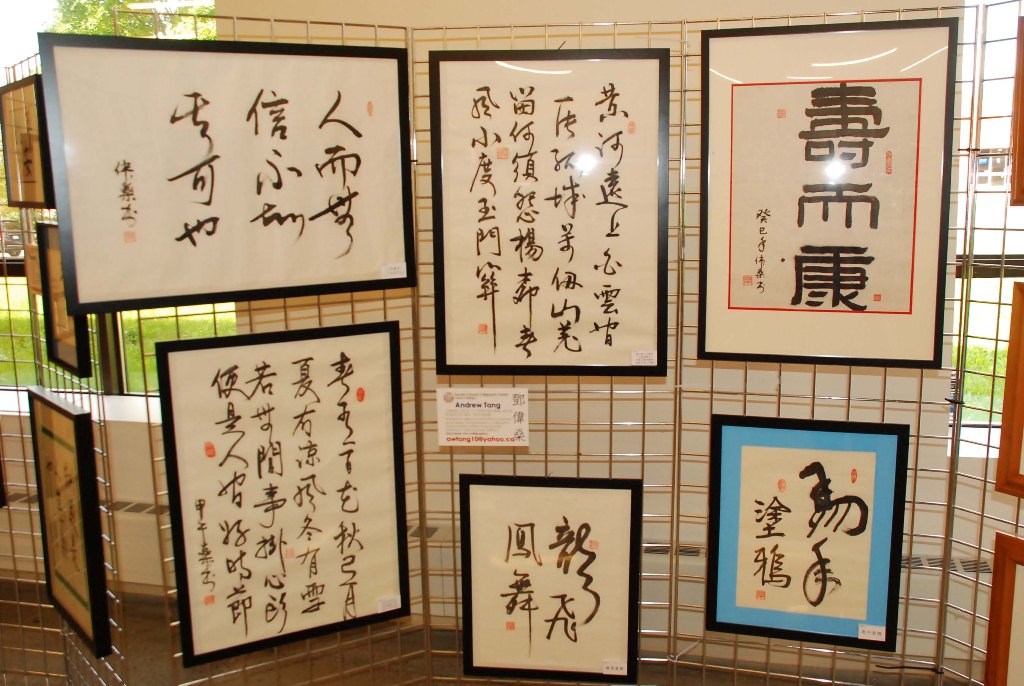 人而無
信不知
其可也
偉桑書
黃河遠上白雲間
一片孤城萬仞山羌
笛何須怨楊柳春
風不度玉門關
壽而康
癸巳年偉桑書
春有百花秋有月
夏有涼風冬有雪
若無閒事掛心頭
便是人間好時節
甲午桑書
Andrew Tang
awtang10@yahoo.ca
鄧偉桑
龍飛
鳳舞
塗鴉